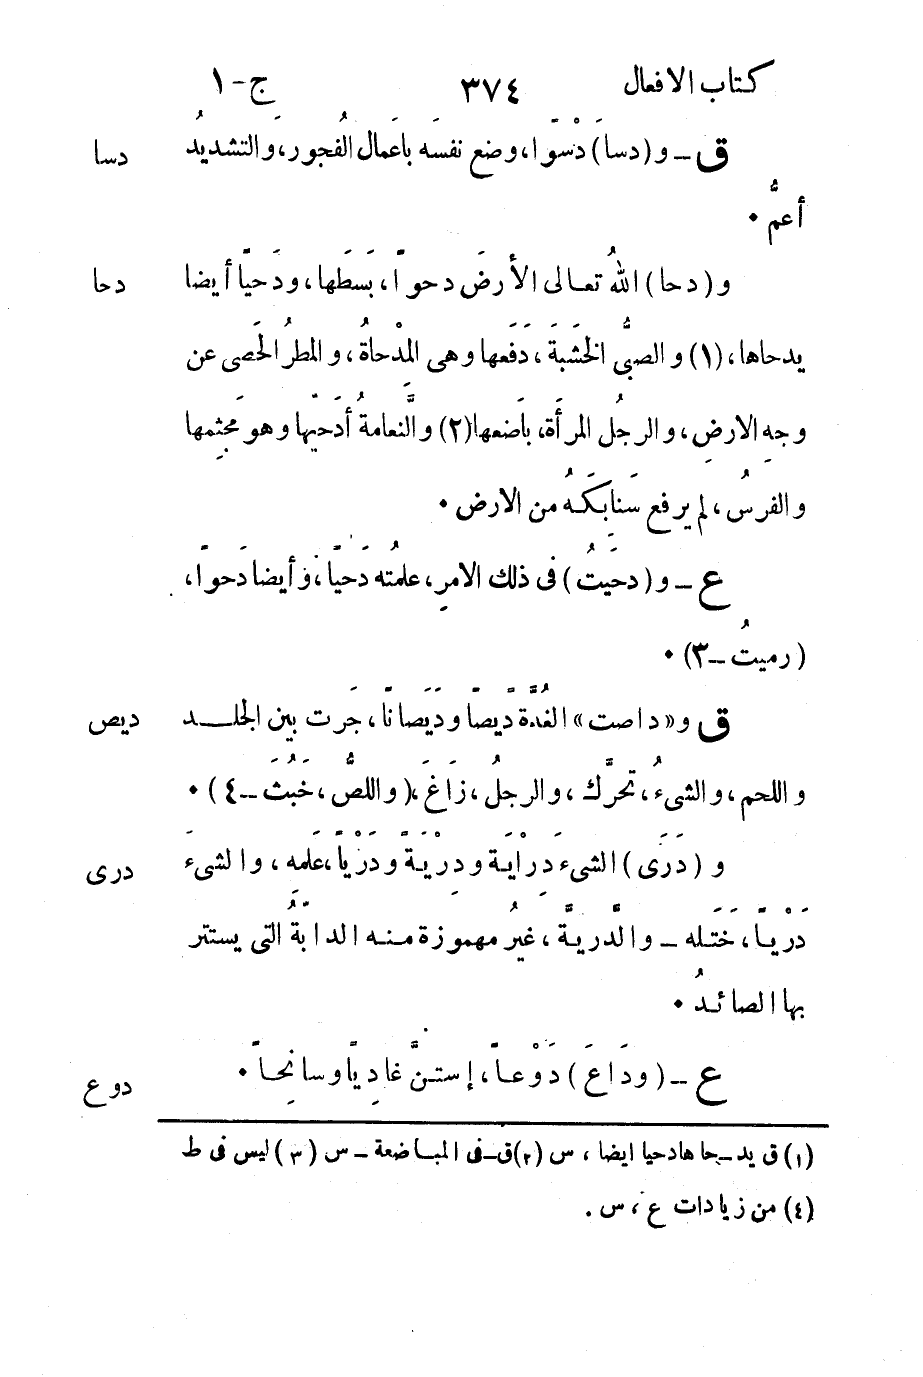 كتاب الافعال ٣٧٤ ج-١
ق ـ و (دسا) دْسوًا، وضع نفسَه بأعمال الفُجور، والتشديدُ دسا
أعمُّ •
و (دحا) اللهُ تعالى الأرضَ دحوًا، بَسَطها، ودَحيًا أيضا دحا
يدحاها، (١) والصبىُّ الخشَبَةَ، دَفَعها وهى المدْحاةُ، والمطرُ الحَصى عن
وجهِ الارضِ، والرجلُ المرأَة، بَاضَعها (٢) والنَّعامةُ أُدَحيّها وهو مَجثِمها
والفرسُ، لم يرفع سَنابِكَهُ من الارض •
ع ـ و (دحَيتُ) فى ذلك الامرِ، علمتُه دَحيًا، وأيضا دَحوًا،
(رميتُ ـ ٣) •
ق و «داصت» الغُدَّةُ ديَصًا وديَصانًا، جَرت بين الجلد ديص
واللحم، والشىءُ، تحرَّك، والرجلُ، زاغَ، (واللصُّ، خَبُثَ ـ ٤) •
و (دَرَى) الشىءَ دِرايَة ودِرْيَةً ودَرْيًا، علمَه، والشىءَ درى
دَرْيًا، خَتَله ـ والدَّريةُ، غيرُ مهموزة منه الدابَّةُ التى يستتر
بها الصائدُ •
ع ـ (ودَاعَ) دَوْعًا، إستنَّ غادِيًا وسانِحًا • دوع
(١) ق يد ـ حاهادحيا ايضا، س (٢) ق ـ فى المباضعة ـ س (٣) ليس فى ط
(٤) من زيادات ع، س.